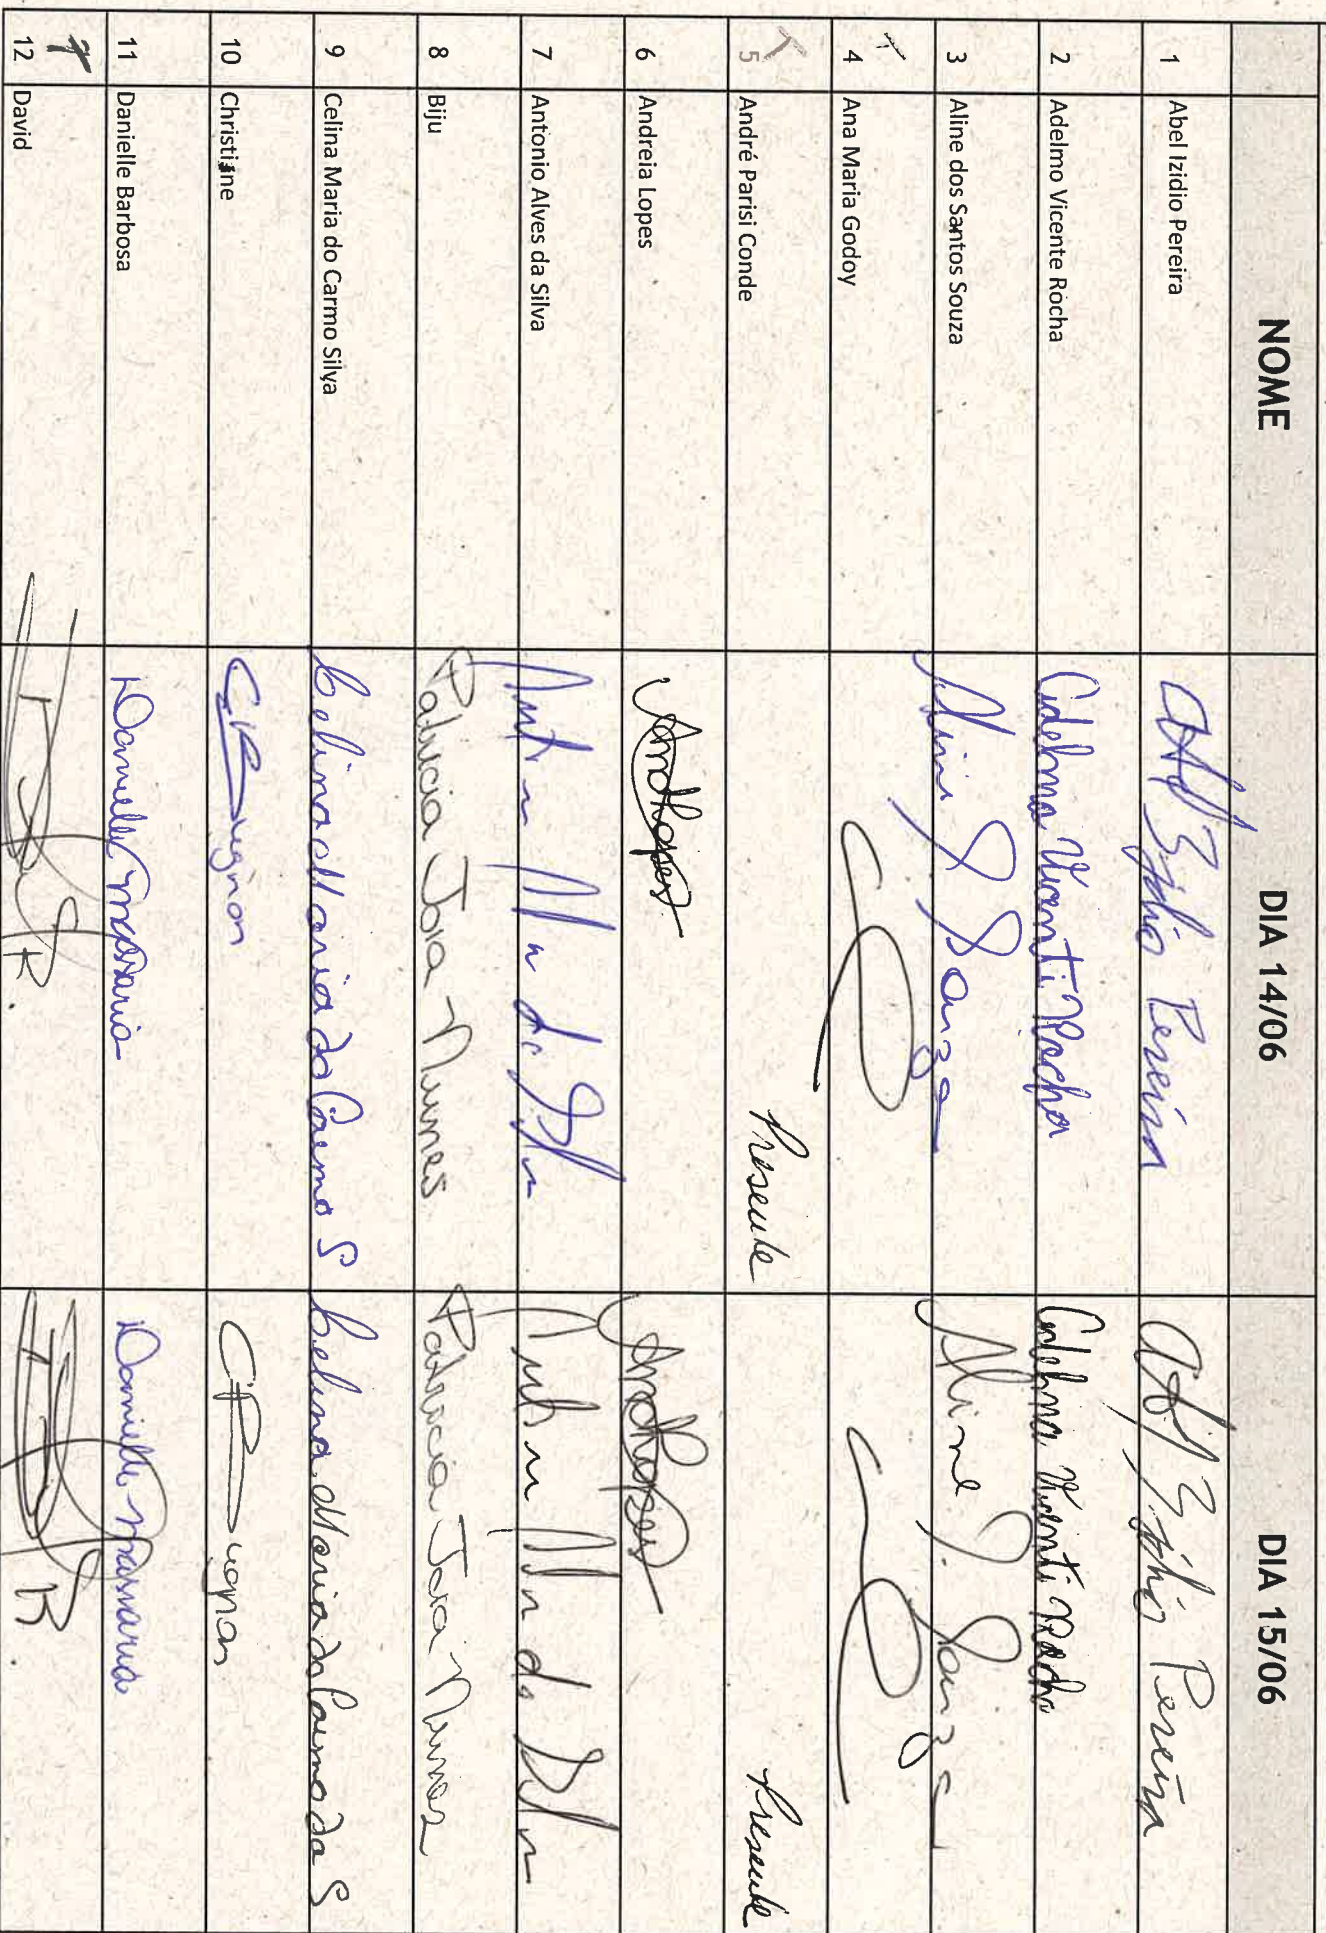 NOME DIA 14/06 DIA 15/06
1 Abel Izidio Pereira Abel Izidio Pereira Abel Izidio Pereira
2 Adelmo Vicente Rocha Adelmo Vicente Rocha Adelmo Vicente Rocha
3 Aline dos Santos Souza Aline S Souza Aline S. Souza
4 Ana Maria Godoy
5 André Parisi Conde Presente Presente
6 Andreia Lopes AndLopes AndLopes
7 Antonio Alves da Silva
8 Biju Patricia Joia Nunes Patricia Joia Nunes
9 Celina Maria do Carmo Silva Celina Maria do Carmo S Celina Maria do Carmo da S
10 Christiane
11 Danielle Barbosa Danielle Danielle
12 David